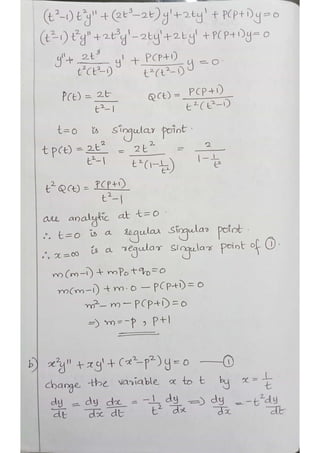 (t²-1)t²y" + (2t³-2t)y' + 2ty' + P(P+1)y=0
(t²-1)t²y" + 2t³y' - 2ty' + 2ty' + P(P+1)y=0
y" + 2t³/t²(t²-1) y' + P(P+1)/t²(t²-1) y = 0
P(t) = 2t/t²-1 Q(t) = P(P+1)/t²(t²-1)
t=0 is singular point.
t P(t) = 2t²/t²-1 = 2t²/t²(1-1/t²) = 2/1-1/t²
t² Q(t) = P(P+1)/t²-1
are analytic at t=0.
∴ t=0 is a regular singular point.
∴ x=∞ is a regular singular point of ①.
m(m-1) + mP₀ + q₀=0
m(m-1) + m·0 - P(P+1)=0
m² - m - P(P+1)=0
⇒ m=-p, P+1
b) x²y" + xy' + (x²-p²)y=0 —①
change the variable x to t by x = 1/t
dy/dt = dy/dx dx/dt = -1/t² dy/dx ⇒ dy/dx = -t² dy/dt